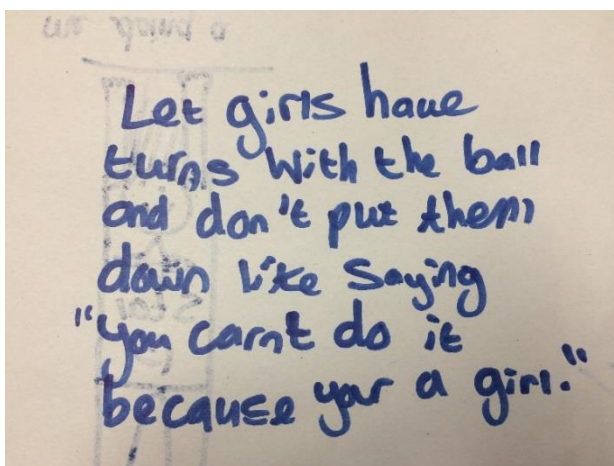 Let girls have
turns with the ball
and don't put them
down like saying
"you carnt do it
because your a girl."